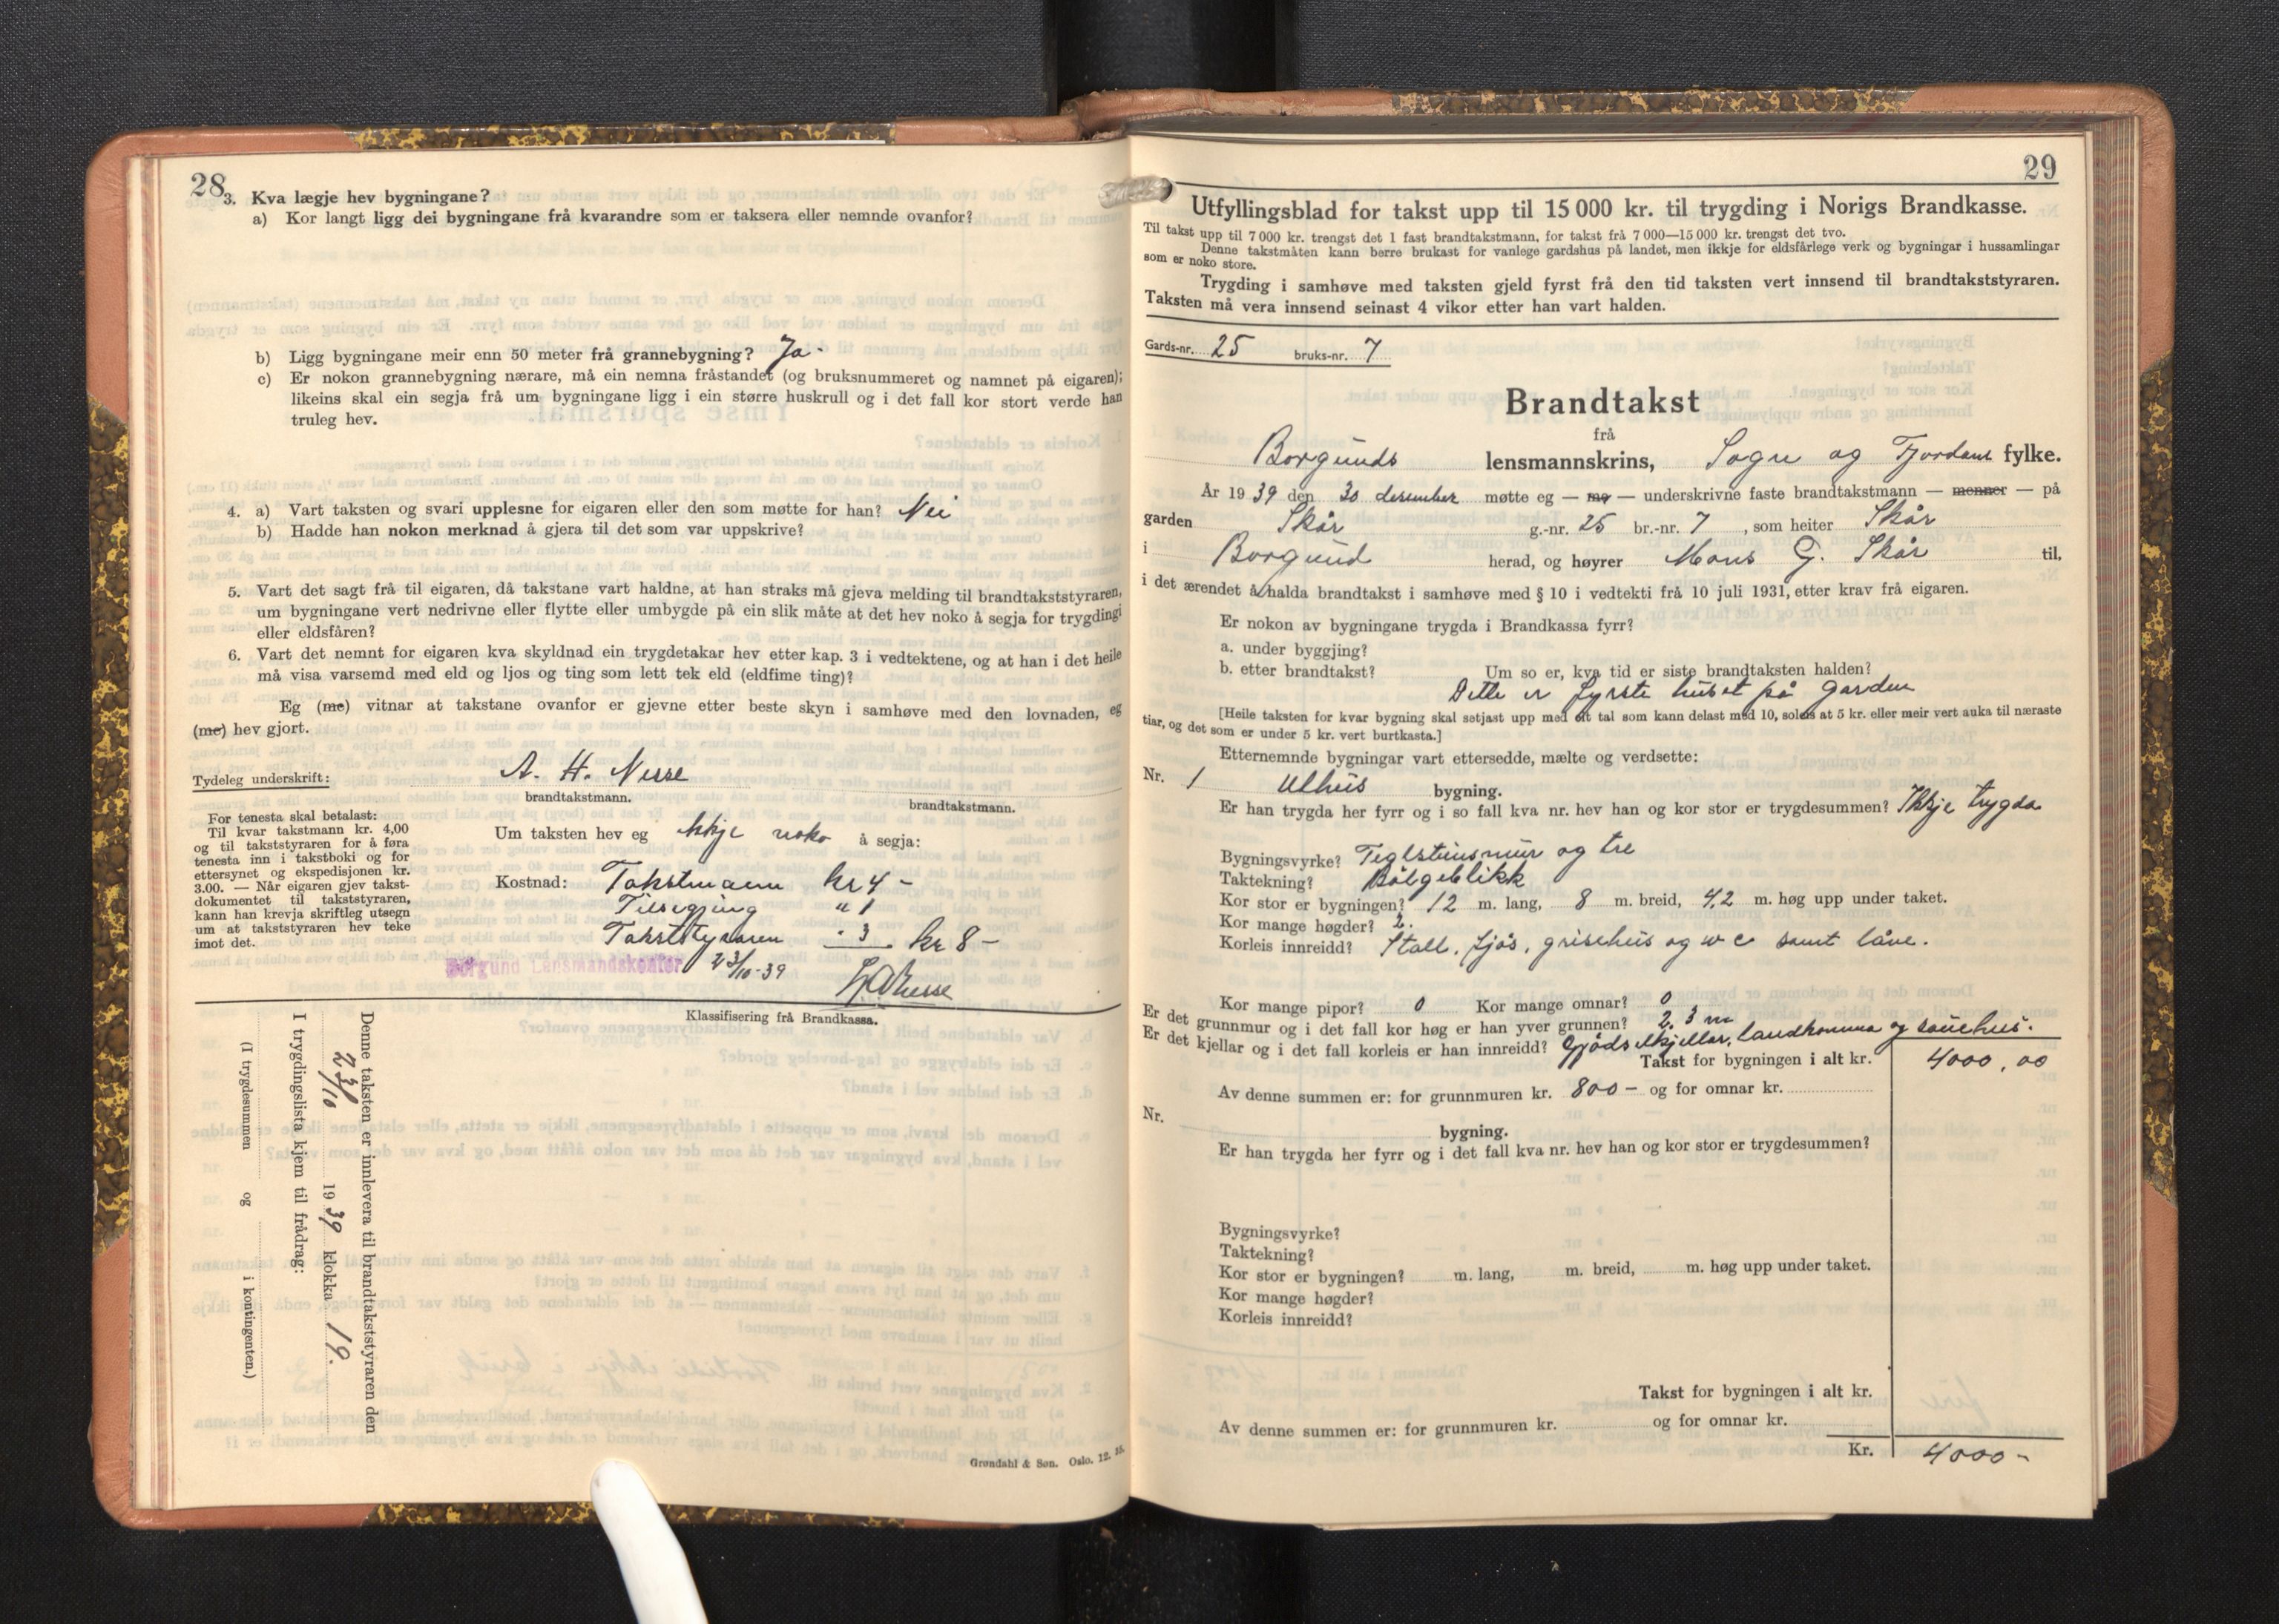 28
3. Kva lægje hev bygningane?
a) Kor langt ligg dei bygningane frå kvarandre som er taksera eller nemnde ovanfor?
b) Ligg bygningane meir enn 50 meter frå grannebygning? Ja.
c) Er nokon grannebygning nærare, må ein nemna fråstandet (og bruksnummeret og namnet på eigaren);
likeins skal ein segja frå um bygningane ligg i ein større huskrull og i det fall kor stort verde han
truleg hev.
4. a) Vart taksten og svari upplesne for eigaren eller den som møtte for han? Nei
b) Hadde han nokon merknad å gjera til det som var uppskrive?
5. Vart det sagt frå til eigaren, då takstane vart haldne, at han straks må gjeva melding til brandtakststyraren,
um bygningane vert nedrivne eller flytte eller umbygde på ein slik måte at det hev noko å segja for trygdingi
eller eldsfåren?
6. Vart det nemnt for eigaren kva skyldnad ein trygdetakar hev etter kap. 3 i vedtektene, og at han i det heile
må visa varsemd med eld og ljos og ting som lett tek eld (eldfime ting)?
Eg (me) vitnar at takstane ovanfor er gjevne etter beste skyn i samhøve med den lovnaden, eg
(me) hev gjort.
Tydeleg underskrift: A. H. Nesse
brandtakstmann. brandtakstmann.
For tenesta skal betalast:
Til kvar takstmann kr. 4,00
og til takststyraren for å føra
tenesta inn i takstboki og for
ettersynet og ekspedisjonen kr.
3.00. — Når eigaren gjev takst-
dokumentet til takststyraren,
kann han krevja skriftleg utsegn
um at takststyraren hev teke
imot det.
Um taksten hev eg ikkje noko å segja:
Kostnad: Takstmann kr 4 -
Tilsegjing " 1
Takststyraren " 3 kr 8 -
Borgund Lensmandskontor 23/10-39
Klassifisering frå Brandkassa.
Denne taksten er innlevera til brandtakststyraren den
23/10 1939 klokka 19.
I trygdingslista kjem til frådrag:
(I trygdesummen og i kontingenten.)
Grøndahl & Søn. Oslo. 12. 35.
29
Utfyllingsblad for takst upp til 15 000 kr. til trygding i Norigs Brandkasse.
Til takst upp til 7 000 kr. trengst det 1 fast brandtakstmann, for takst frå 7 000—15 000 kr. trengst det tvo.
Denne takstmåten kann berre brukast for vanlege gardshus på landet, men ikkje for eldsfårlege verk og bygningar i hussamlingar
som er noko store.
Trygding i samhøve med taksten gjeld fyrst frå den tid taksten vert innsend til brandtakststyraren.
Taksten må vera innsend seinast 4 vikor etter han vart halden.
Gards-nr. 25 bruks-nr. 7
Brandtakst
frå
Borgunds lensmannskrins, Sogn og Fjordane fylke.
År 1939 den 30 desember møtte eg — me — underskrivne faste brandtakstmann — menner — på
garden Skår g.-nr. 25 br.-nr. 7, som heiter Skår
i Borgund herad, og høyrer Mons G. Skår til,
i det ærendet å halda brandtakst i samhøve med § 10 i vedtekti frå 10 juli 1931, etter krav frå eigaren.
Er nokon av bygningane trygda i Brandkassa fyrr?
a. under byggjing?
b. etter brandtakst? Um so er, kva tid er siste brandtaksten halden?
Dette er fyrste huset på garden
[Heile taksten for kvar bygning skal setjast upp med eit tal som kann delast med 10, soleis at 5 kr. eller meir vert auka til næraste
tiar, og det som er under 5 kr. vert burtkasta.]
Etternemnde bygningar vart ettersedde, mælte og verdsette:
Nr. 1 Uthus bygning.
Er han trygda her fyrr og i so fall kva nr. hev han og kor stor er trygdesummen? Ikkje trygda
Bygningsvyrke? Teglsteinsmur og tre
Taktekning? Bölgeblikk
Kor stor er bygningen? 12 m. lang, 8 m. breid, 4,2 m. høg upp under taket.
Kor mange høgder? 2.
Korleis innreidd? Stall, fjös, grisehus og w c samt låve.
Kor mange pipor? 0 Kor mange omnar? 0
Er det grunnmur og i det fall kor høg er han yver grunnen? 2,3 m
Er det kjellar og i det fall korleis er han innreidd? Gjödselkjellar, landkomma og sauehus.
Takst for bygningen i alt kr. 4000,00
Av denne summen er: for grunnmuren kr. 800 - og for omnar kr.
Nr. bygning.
Er han trygda her fyrr og i det fall kva nr. hev han og kor stor er trygdesummen?
Bygningsvyrke?
Taktekning?
Kor stor er bygningen? m. lang, m. breid, m. høg upp under taket.
Kor mange høgder?
Korleis innreidd?
Takst for bygningen i alt kr.
Av denne summen er: for grunnmuren kr. og for omnar kr.
Kr. 4000 -